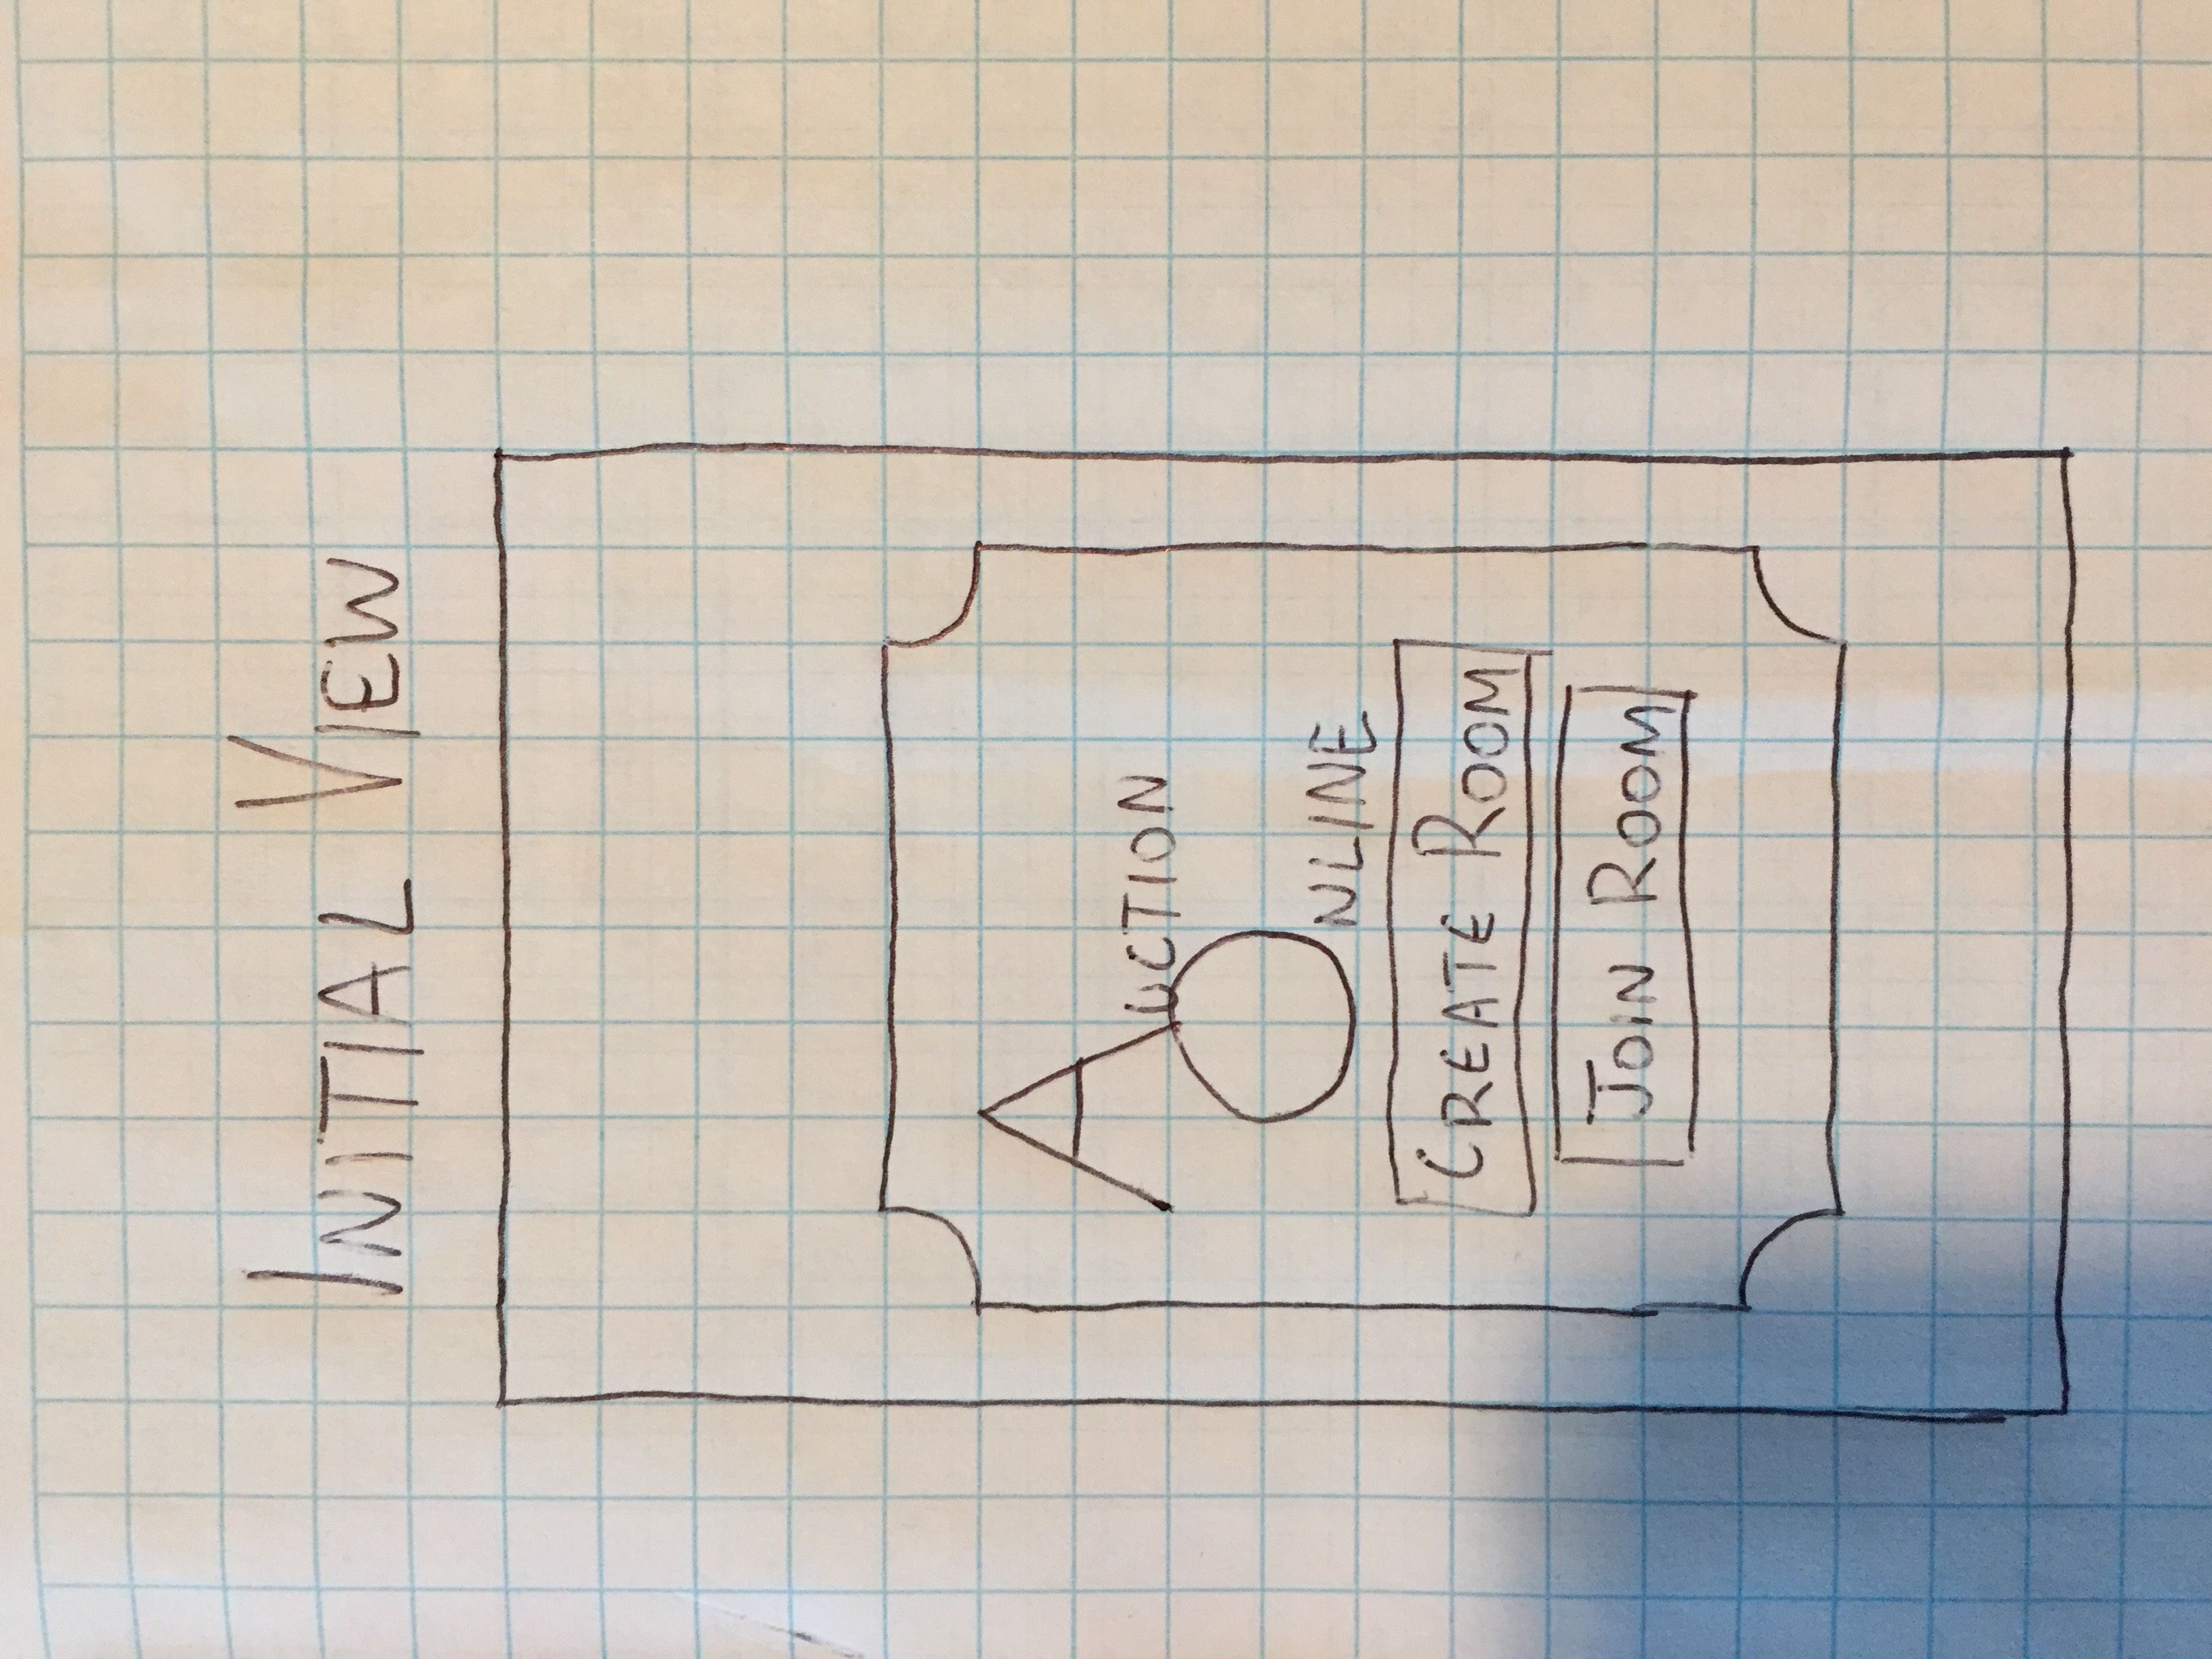 INITIAL VIEW
AUCTION
ONLINE
CREATE ROOM
JOIN ROOM